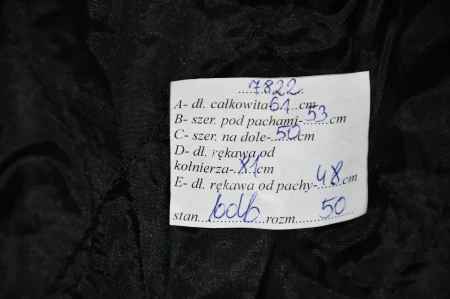 7822
A- dł. całkowita 61 cm
B- szer. pod pachami- 53 cm
C- szer. na dole- 50 cm
D- dł. rękawa od
kołnierza- 81 cm
E- dł. rękawa od pachy- 48 cm
stan bdb rozm. 50